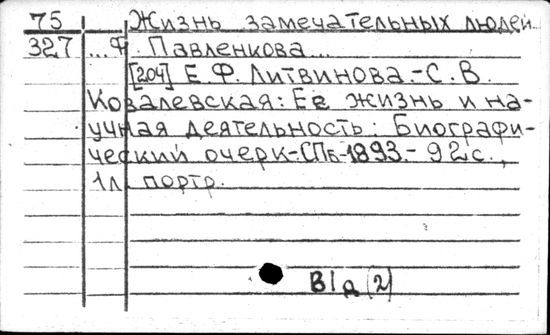 75 Жизнь замечательных людей
327 ...Ф. Павленкова...
[204] Е.Ф. Литвинова.-С.В.
Ковалевская: Ее жизнь и на-
учная деятельность: Биографи-
ческий очерк-СПб-1893.-92с.,
1л. портр.
В1д (2)